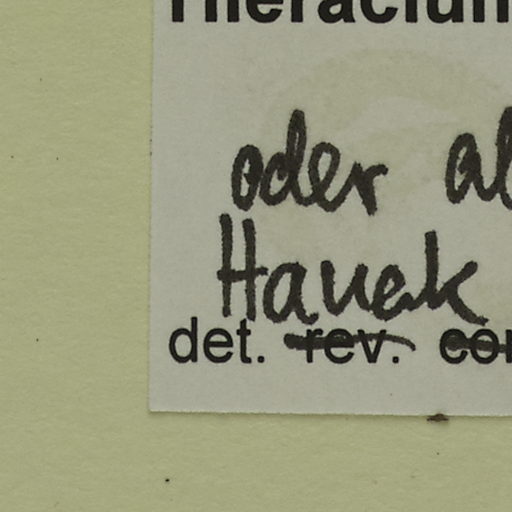 Hieraciu
oder al
Hanek
det. rev. co